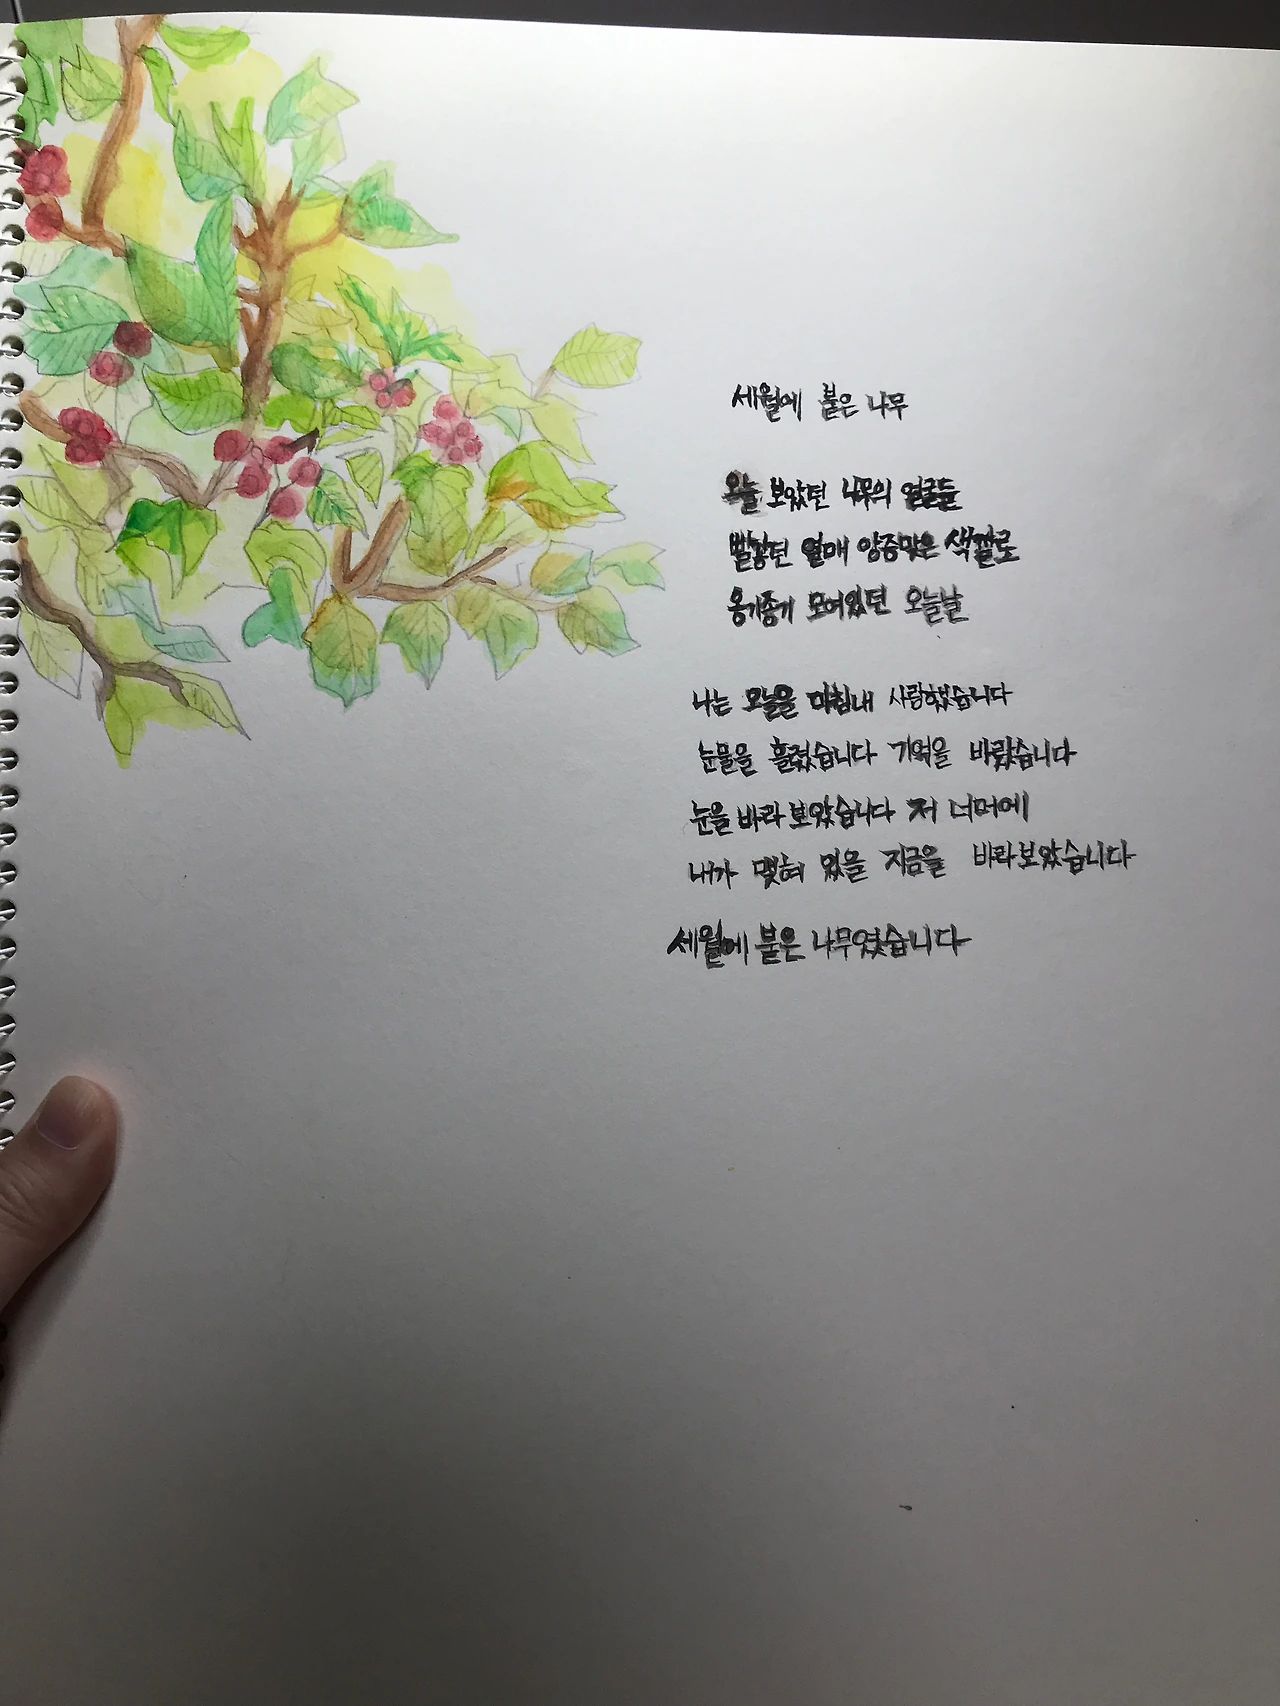 세월에 붉은 나무
오늘 보았던 나무의 얼굴들
빨갛던 열매 앙증맞은 색깔로
옹기종기 모여있던 오늘날
나는 오늘을 마침내 사랑했습니다
눈물을 흘렸습니다 기억을 바랐습니다
눈을 바라 보았습니다 저 너머에
내가 맺혀 있을 지금을 바라보았습니다
세월에 붉은 나무였습니다